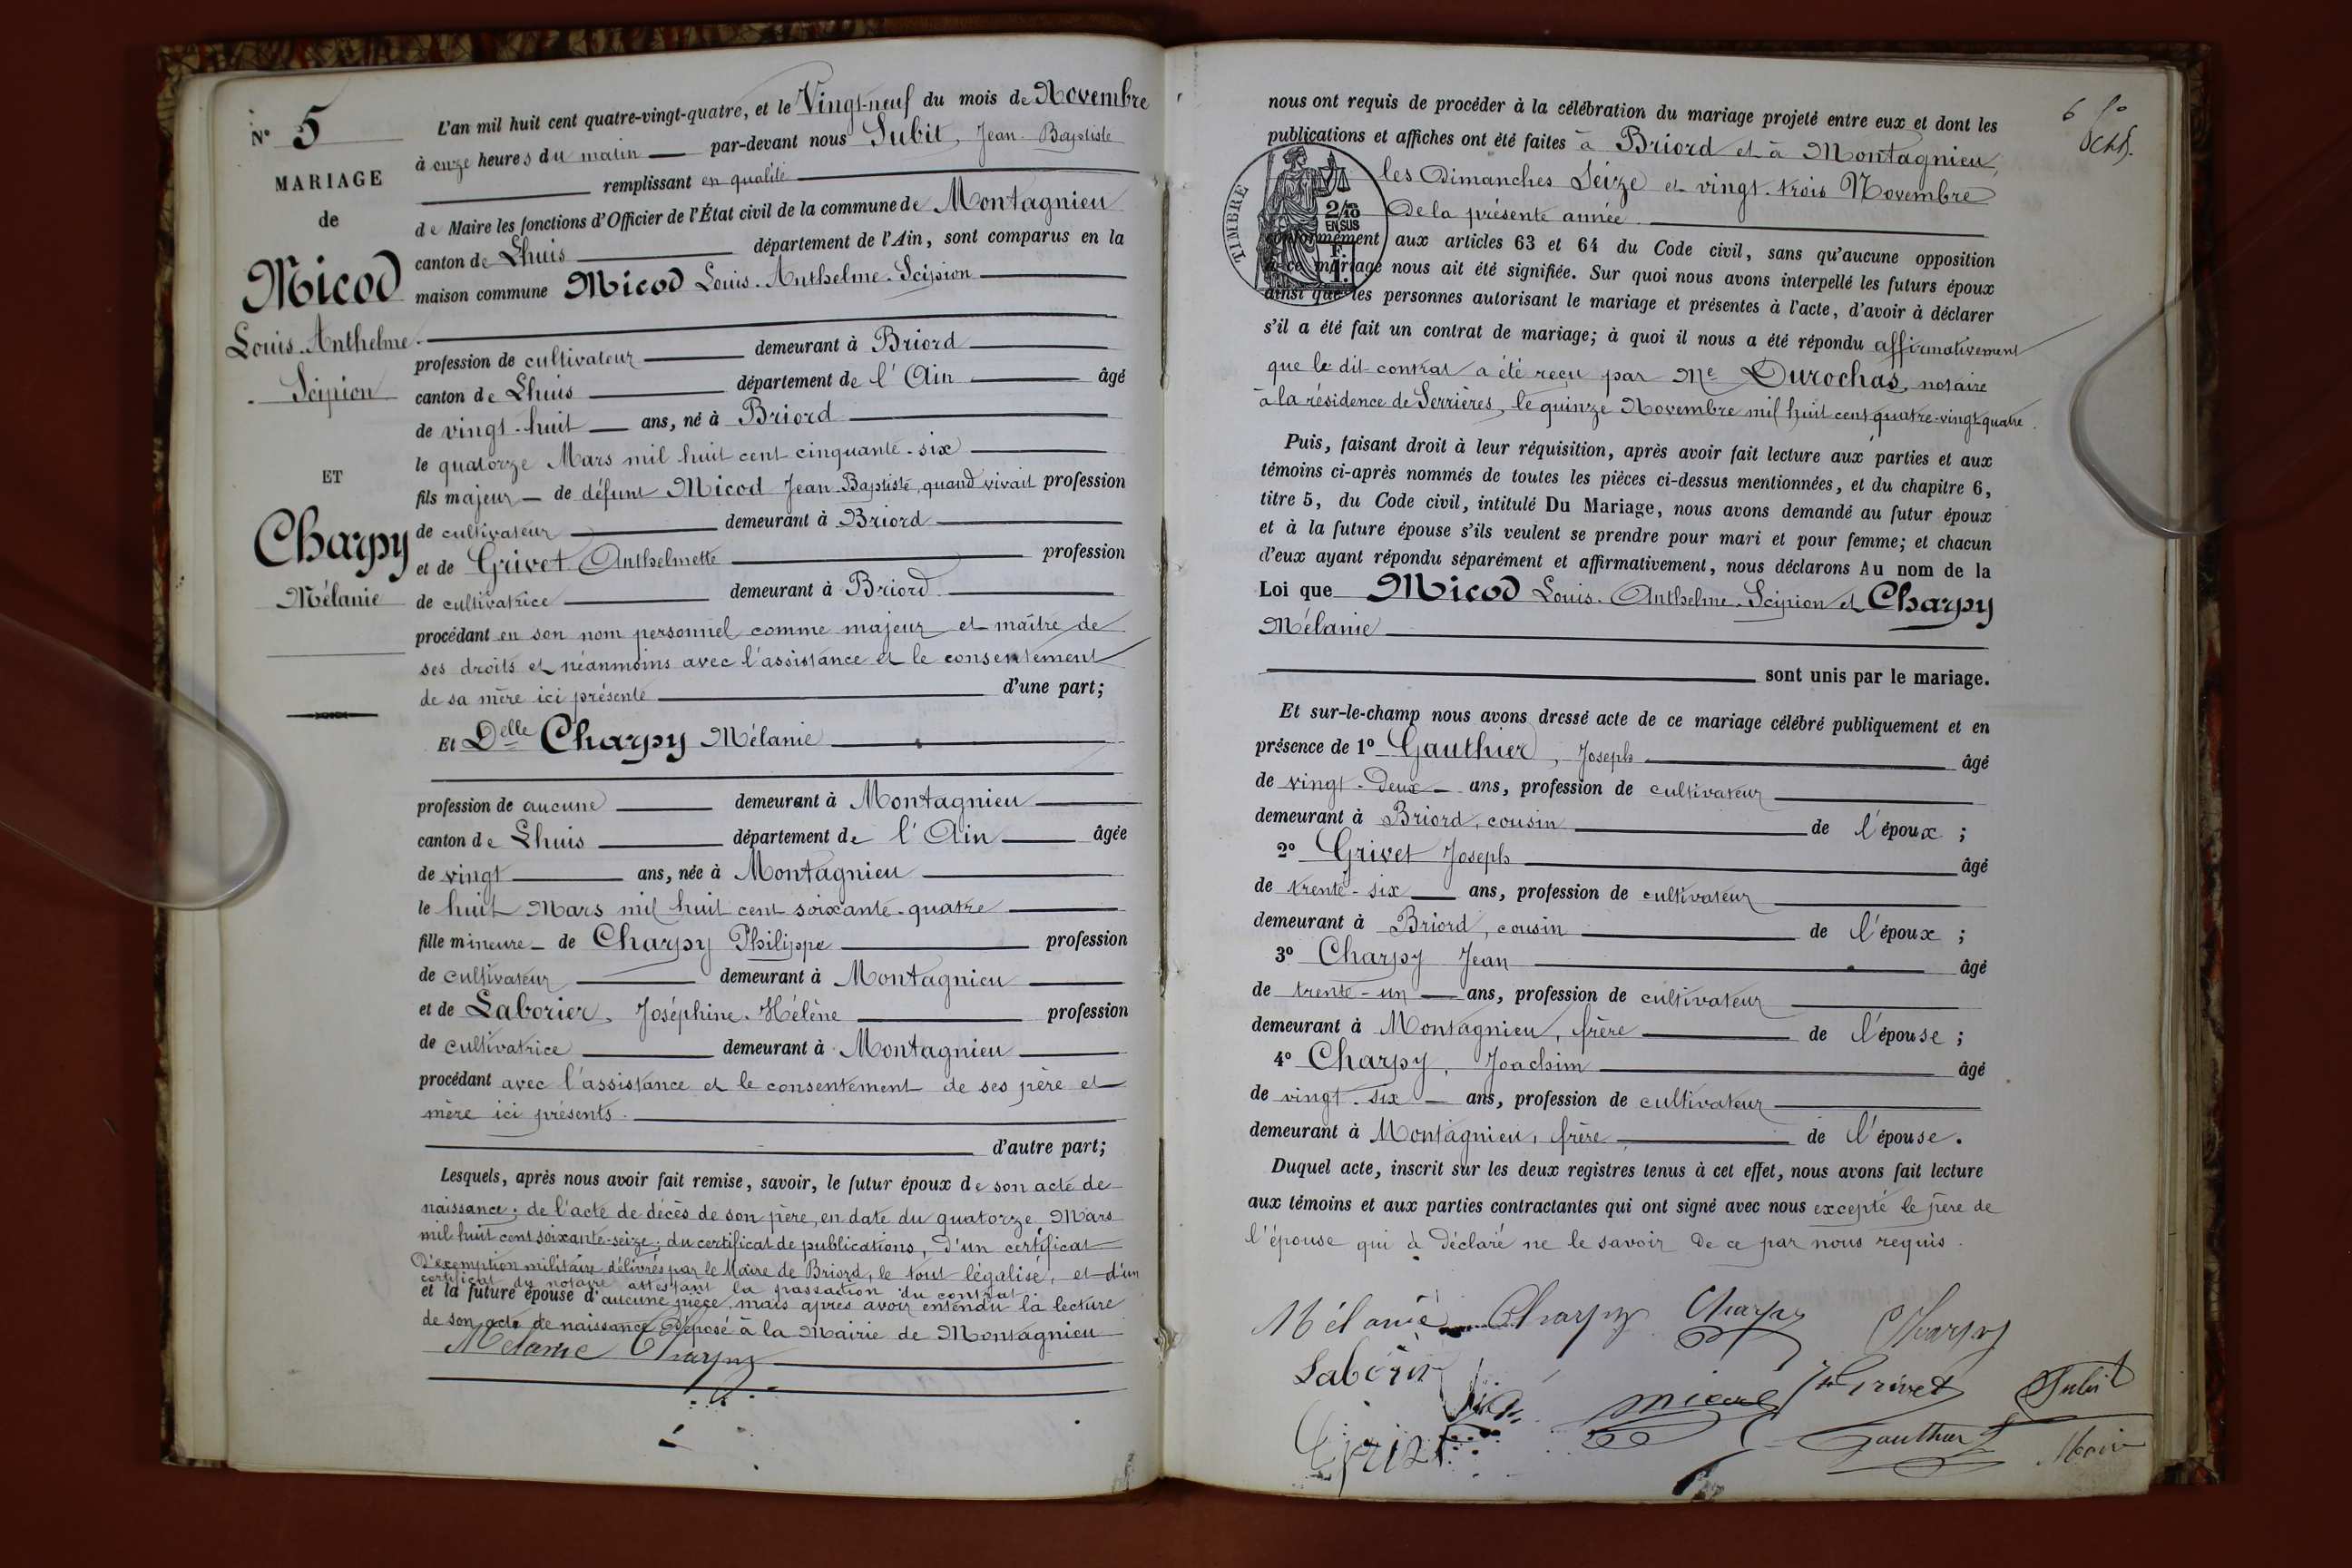 N° 5
MARIAGE
de
Micod
Louis-Anthelme
Scipion
ET
Charpy
Mélanie
L'an mil huit cent quatre-vingt-quatre, et le Vingt-neuf du mois de Novembre
à onze heures du matin par-devant nous Subit, Jean-Baptiste
remplissant en qualité
de Maire les fonctions d'Officier de l'État civil de la commune de Montagnieu
canton de Lhuis département de l'Ain, sont comparus en la
maison commune Micod Louis-Anthelme-Scipion
profession de cultivateur demeurant à Briord
canton de Lhuis département de l'Ain âgé
de vingt-huit ans, né à Briord
le quatorze Mars mil huit cent cinquante-six
fils majeur de défunt Micod Jean-Baptiste, quand vivait profession
de cultivateur demeurant à Briord
et de Grivet Anthelmette profession
de cultivatrice demeurant à Briord
procédant en son nom personnel comme majeur et maître de
ses droits et néanmoins avec l'assistance et le consentement
de sa mère ici présente d'une part;
Et Delle Charpy Mélanie
profession de aucune demeurant à Montagnieu
canton de Lhuis département de l'Ain âgée
de vingt ans, née à Montagnieu
le huit Mars mil huit cent soixante-quatre
fille mineure de Charpy Philippe profession
de cultivateur demeurant à Montagnieu
et de Laborier, Joséphine-Hélène profession
de cultivatrice demeurant à Montagnieu
procédant avec l'assistance et le consentement de ses père et
mère ici présents.
d'autre part;
Lesquels, après nous avoir fait remise, savoir, le futur époux de son acte de
naissance; de l'acte de décès de son père, en date du quatorze Mars
mil huit cent soixante-seize; du certificat de publications, d'un certificat
d'exemption militaire délivrés par le Maire de Briord, le tout légalisé, et d'un
certificat du notaire attestant la passation du contrat.
et la future épouse d'aucune pièce, mais après avoir entendu la lecture
de son acte de naissance déposé à la Mairie de Montagnieu
Mélanie Charpy
6 fo
nous ont requis de procéder à la célébration du mariage projeté entre eux et dont les
publications et affiches ont été faites à Briord et à Montagnieu,
les Dimanches Seize et vingt-trois Novembre
De la présente année.
TIMBRE
2/10
EN SUS
F.
1.
conformément aux articles 63 et 64 du Code civil, sans qu'aucune opposition
à ce mariage nous ait été signifiée. Sur quoi nous avons interpellé les futurs époux
ainsi que les personnes autorisant le mariage et présentes à l'acte, d'avoir à déclarer
s'il a été fait un contrat de mariage; à quoi il nous a été répondu affirmativement
que le dit contrat a été reçu par Me Durochas, notaire
à la résidence de Serrières, le quinze Novembre mil huit cent quatre-vingt-quatre.
Puis, faisant droit à leur réquisition, après avoir fait lecture aux parties et aux
témoins ci-après nommés de toutes les pièces ci-dessus mentionnées, et du chapitre 6,
titre 5, du Code civil, intitulé Du Mariage, nous avons demandé au futur époux
et à la future épouse s'ils veulent se prendre pour mari et pour femme; et chacun
d'eux ayant répondu séparément et affirmativement, nous déclarons Au nom de la
Loi que Micod Louis-Anthelme-Scipion et Charpy
Mélanie
sont unis par le mariage.
Et sur-le-champ nous avons dressé acte de ce mariage célébré publiquement et en
présence de 1° Gauthier, Joseph âgé
de vingt-deux ans, profession de cultivateur
demeurant à Briord, cousin de l'époux;
2° Grivet Joseph âgé
de trente-six ans, profession de cultivateur
demeurant à Briord, cousin de l'époux;
3° Charpy Jean âgé
de trente-un ans, profession de cultivateur
demeurant à Montagnieu, frère de l'épouse;
4° Charpy, Joachim âgé
de vingt-six ans, profession de cultivateur
demeurant à Montagnieu, frère de l'épouse.
Duquel acte, inscrit sur les deux registres tenus à cet effet, nous avons fait lecture
aux témoins et aux parties contractantes qui ont signé avec nous excepté le père de
l'épouse qui a déclaré ne le savoir de ce par nous requis.
Mélanie Charpy Charpy Charpy
Micod Grivet Subit
Gauthier Maire